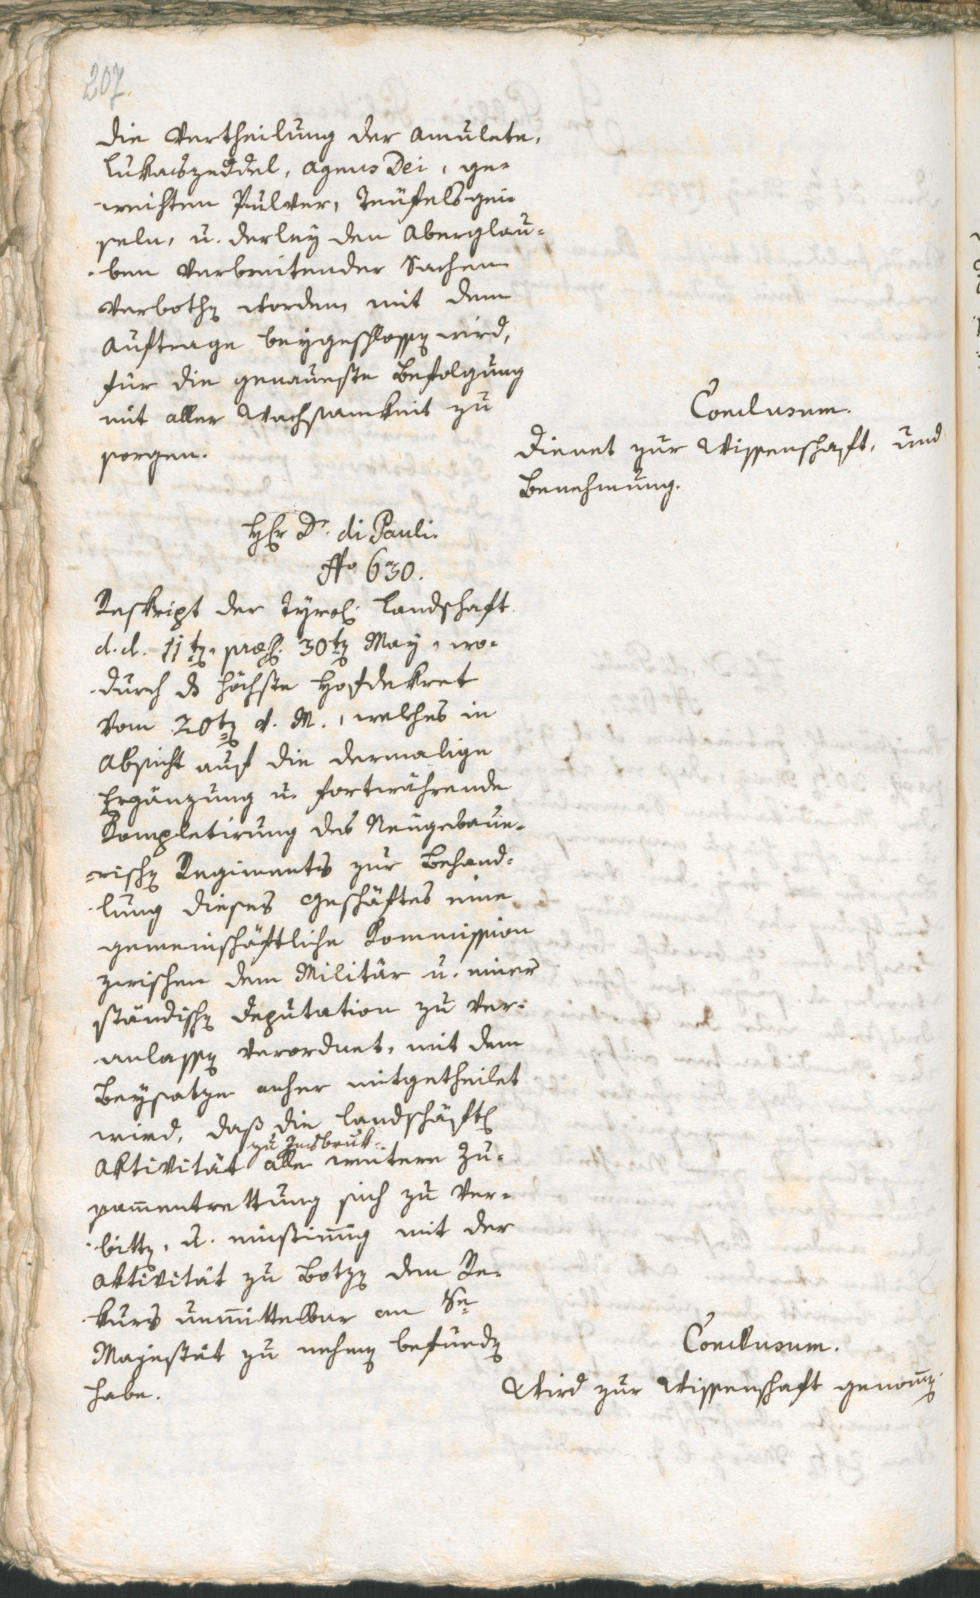 207.
die Vertheilung der Amulete,
Lukaszeddel, Agnus Dei, ge-
weichten Pulver, Teufelsgei-
ßeln, u. derley den Aberglau-
ben verbreitender Sachen
verbothen worden, mit dem
Auftrage beygeschlossen wird,
für die genaueste Befolgung
mit aller Wachsamkeit zu
sorgen.
Conclusum.
Dienet zur Wissenschaft, und
Benehmung.
Hr Dr. di Pauli
No 630.
Reskript der Tyrol. Landschaft
d. d. 11ten, præs. 30ten May, wo-
durch das höchste Hofdekret
vom 20ten d. M., welches in
Absicht auf die dermalige
Ergänzung u. fortwährende
Kompletirung des Neugebaue-
rischen Regiments zur Behand-
lung dieses Geschäftes eine
gemeinschäftliche Kommission
zwischen dem Militär u. einer
ständischen Deputation zu ver-
anlassen verordnet, mit dem
Beysatze anher mitgetheilet
wird, daß die landschäftl.
zu Insbruk
Aktivität alle weitere Zu-
sam̅entrettung sich zu ver-
bitten, u. einstim̅ig mit der
Aktivität zu Botzen den Re-
kurs unmittelbar an Se
Majestät zu nehmen befunden
habe.
Conclusum.
Wird zur Wissenschaft genom̅en.